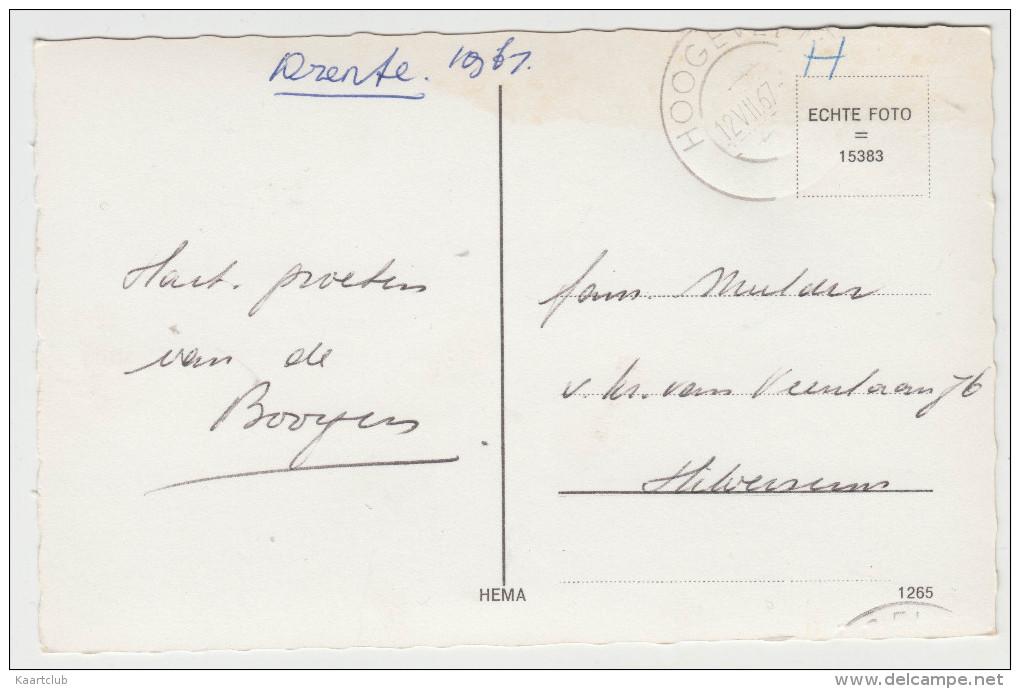 Drente. 1967.
H
HOOGEVEEN
12.VIII.67
ECHTE FOTO
=
15383
Hart. groeten
van de
Booyens
fam. Mulder
v. hr. van Veenlaan 76
Hilversum
HEMA
1265
Kaartclub
delcampe.net